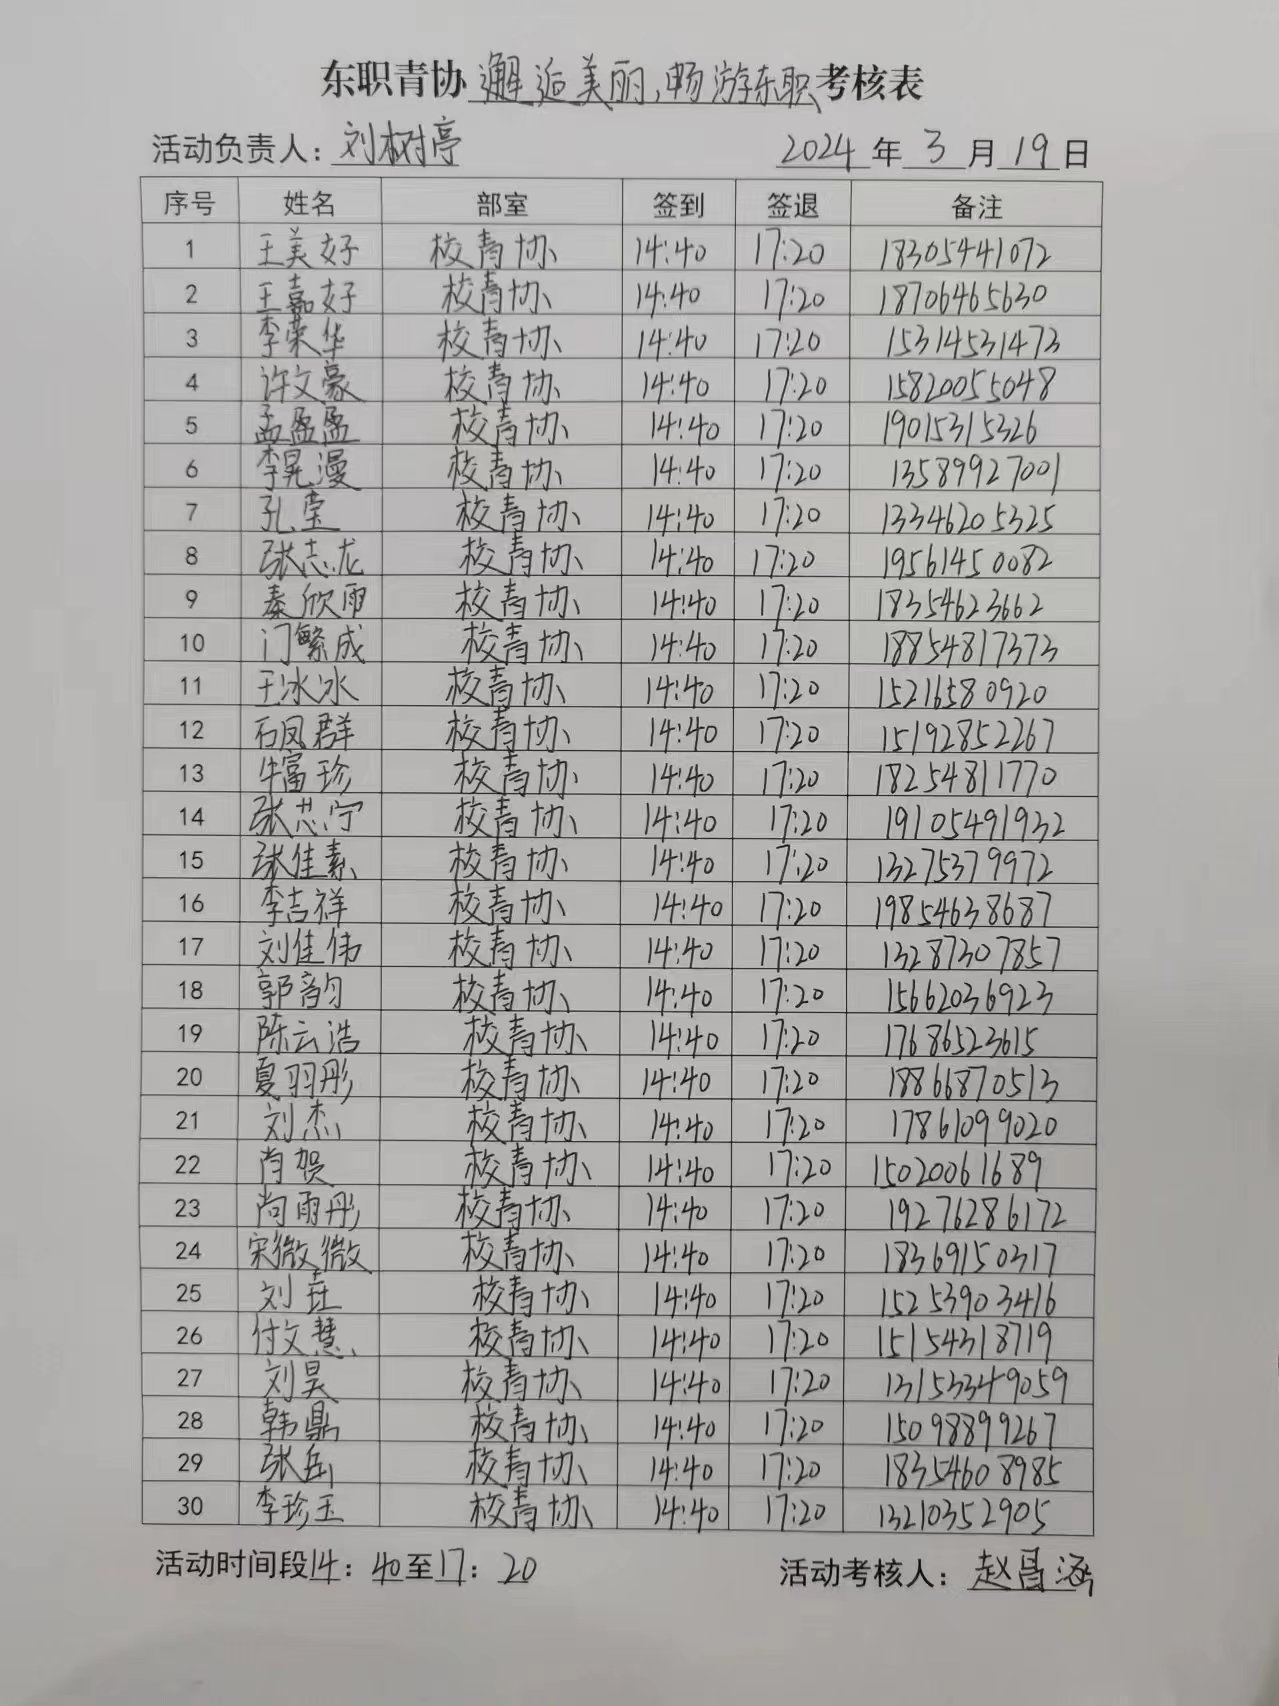 东职青协邂逅美丽、畅游东职考核表
活动负责人：刘树亭 2024年3月19日
序号 姓名 部室 签到 签退 备注
1 王美好 校青协 14:40 17:20 18305441072
2 王嘉好 校青协 14:40 17:20 18706465630
3 李荣华 校青协 14:40 17:20 15314531473
4 许文豪 校青协 14:40 17:20 15820055048
5 孟盈盈 校青协 14:40 17:20 19015315326
6 李晃漫 校青协 14:40 17:20 13589927001
7 孔莹 校青协 14:40 17:20 13346205325
8 张志龙 校青协 14:40 17:20 19561450082
9 秦欣雨 校青协 14:40 17:20 18354623662
10 门繁成 校青协 14:40 17:20 18854817373
11 王冰冰 校青协 14:40 17:20 15216580920
12 石凤群 校青协 14:40 17:20 15192852267
13 牛富珍 校青协 14:40 17:20 18254811770
14 张芯宁 校青协 14:40 17:20 19105491932
15 张佳素 校青协 14:40 17:20 13275379972
16 李吉祥 校青协 14:40 17:20 19854638687
17 刘佳伟 校青协 14:40 17:20 13287307857
18 郭韵 校青协 14:40 17:20 15662036923
19 陈云浩 校青协 14:40 17:20 17686523615
20 夏羽彤 校青协 14:40 17:20 18866870513
21 刘杰 校青协 14:40 17:20 17861099020
22 肖贺 校青协 14:40 17:20 15020061689
23 尚雨彤 校青协 14:40 17:20 19276286172
24 宋微微 校青协 14:40 17:20 18369150317
25 刘垚 校青协 14:40 17:20 15253903416
26 付文慧 校青协 14:40 17:20 15154318719
27 刘昊 校青协 14:40 17:20 13153349059
28 韩鼎 校青协 14:40 17:20 15098899267
29 张岳 校青协 14:40 17:20 18354608985
30 李珍玉 校青协 14:40 17:20 13210352905
活动时间段14：40至17：20 活动考核人：赵昌涵